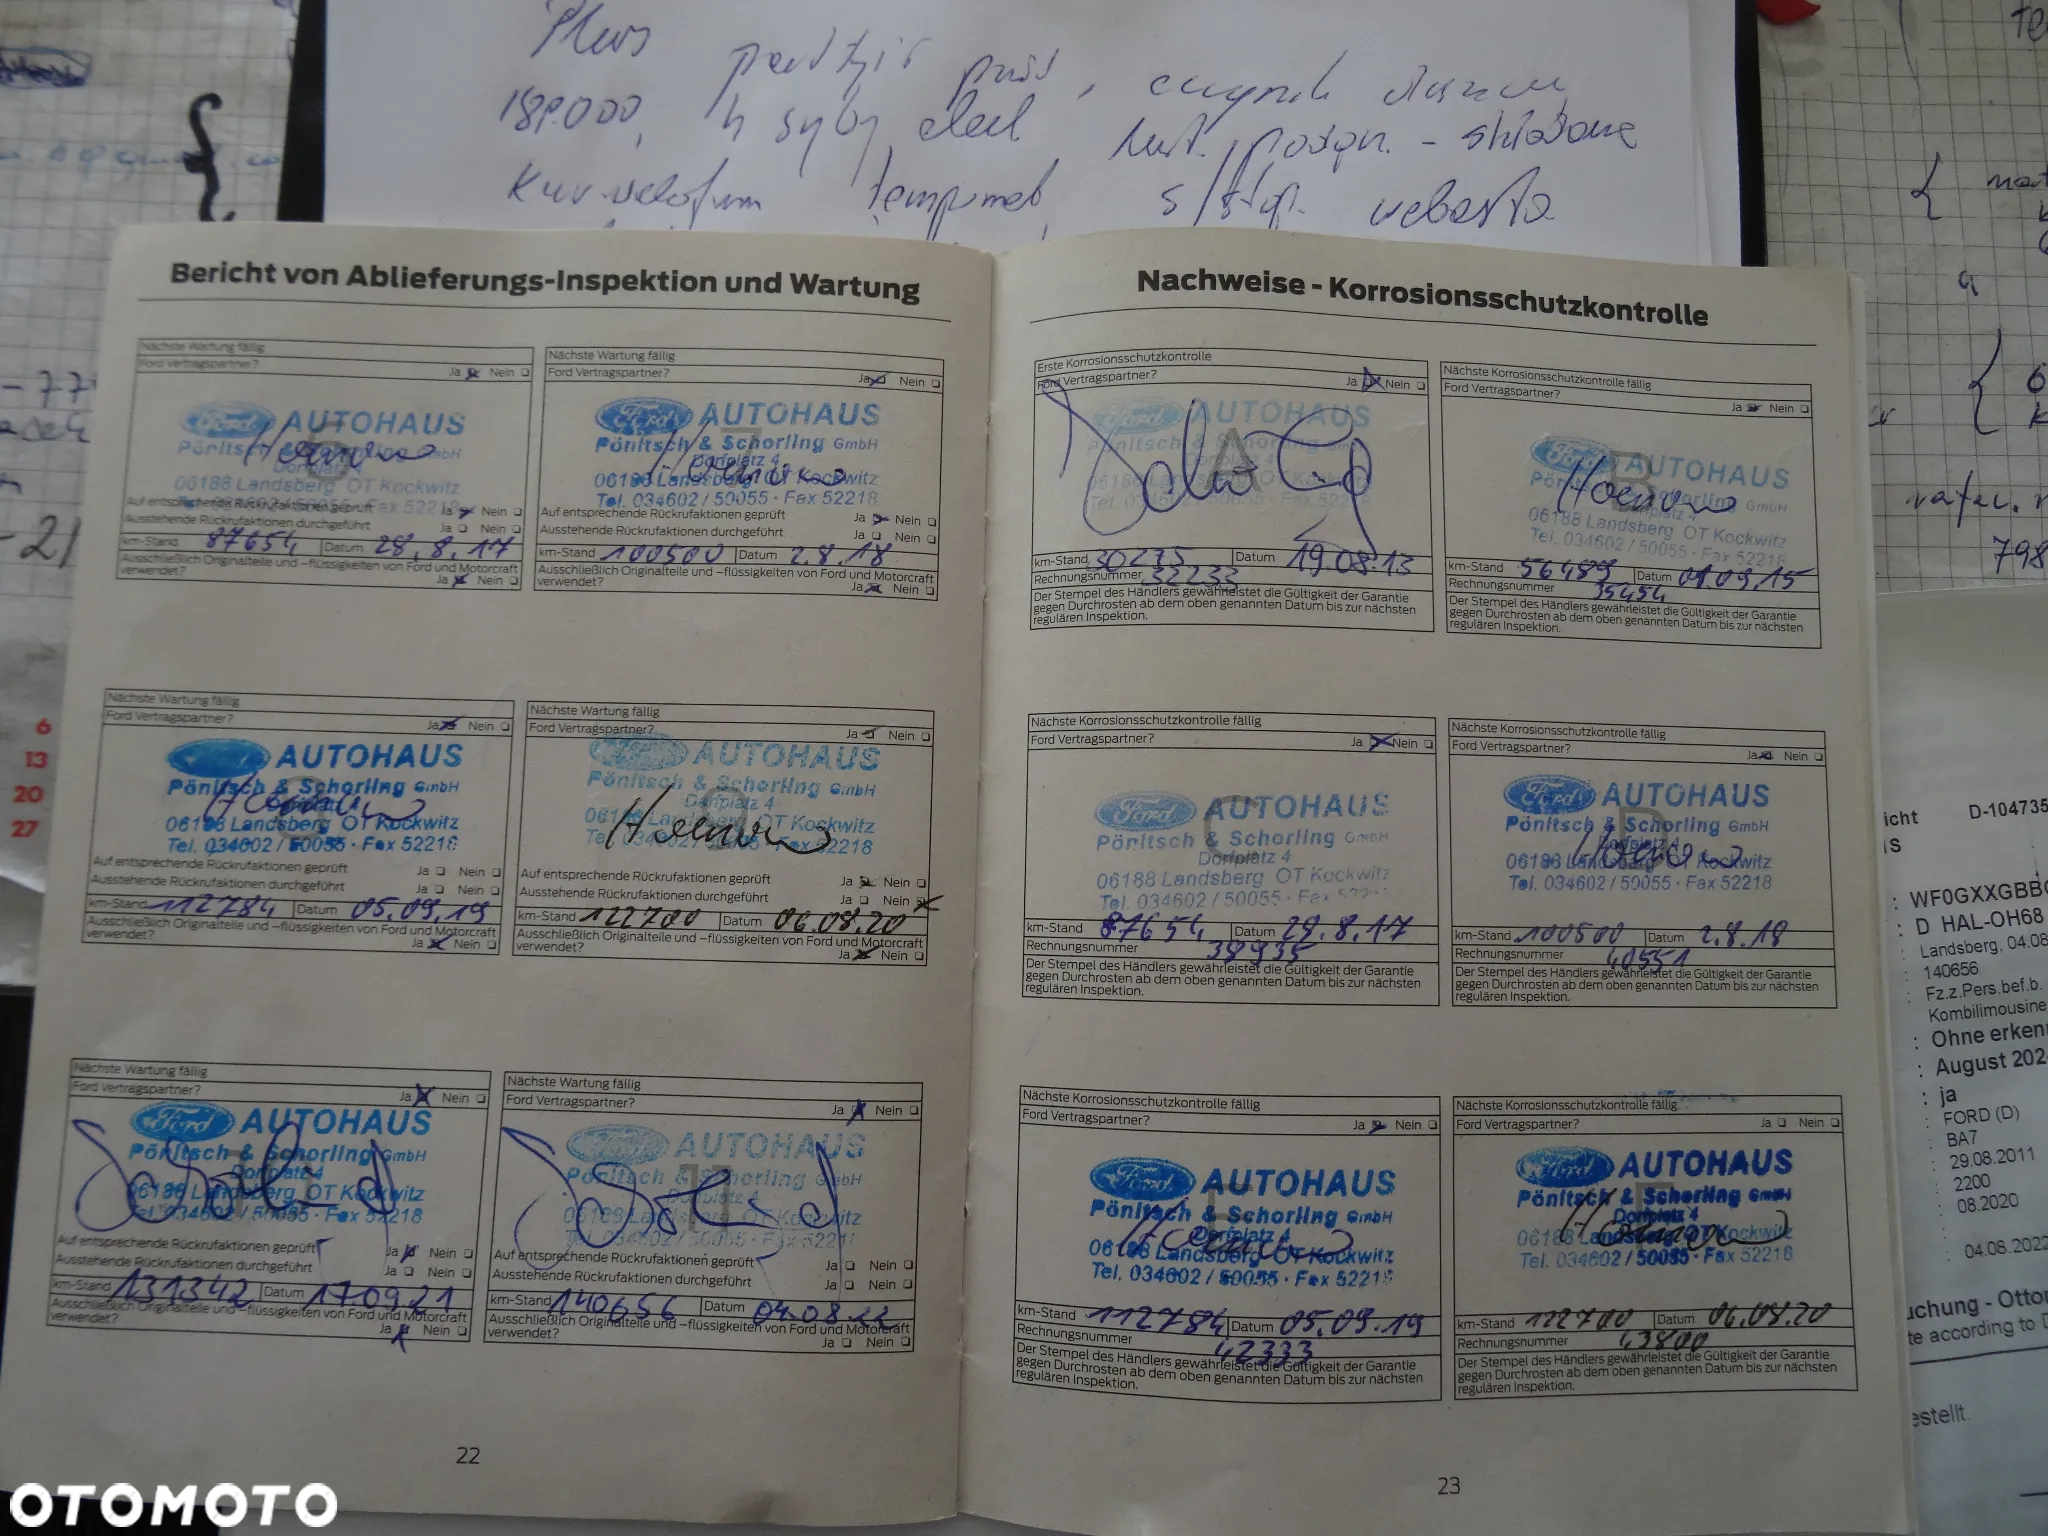 189.000
Bericht von Ablieferungs-Inspektion und Wartung
Nächste Wartung fällig
Ford Vertragspartner?
Ja Nein
Ford AUTOHAUS
Pönitsch & Schorling GmbH
Dorfplatz 4
06188 Landsberg OT Kockwitz
034602/50055 · Fax 52218
Auf entsprechende Rückrufaktionen geprüft
Ja Nein
Ausstehende Rückrufaktionen durchgeführt
Ja Nein
km-Stand 87654 Datum 28.8.17
Ausschließlich Originalteile und -flüssigkeiten von Ford und Motorcraft
verwendet?
Ja Nein
Nächste Wartung fällig
Ford Vertragspartner?
Ja Nein
7
Ford AUTOHAUS
Pönitsch & Schorling GmbH
Dorfplatz 4
06188 Landsberg OT Kockwitz
Tel. 034602/50055 · Fax 52218
Auf entsprechende Rückrufaktionen geprüft
Ja Nein
Ausstehende Rückrufaktionen durchgeführt
Ja Nein
km-Stand 100500 Datum 2.8.18
Ausschließlich Originalteile und -flüssigkeiten von Ford und Motorcraft
verwendet?
Ja Nein
Nächste Wartung fällig
Ford Vertragspartner?
Ja Nein
AUTOHAUS
Pönitsch & Schorling GmbH
06188 Landsberg OT Kockwitz
Tel. 034602/50055 · Fax 52218
Auf entsprechende Rückrufaktionen geprüft
Ja Nein
Ausstehende Rückrufaktionen durchgeführt
Ja Nein
km-Stand 112784 Datum 05.09.19
Ausschließlich Originalteile und -flüssigkeiten von Ford und Motorcraft
verwendet?
Ja Nein
Nächste Wartung fällig
Ford Vertragspartner?
Ja Nein
Ford AUTOHAUS
Pönitsch & Schorling GmbH
Dorfplatz 4
06188 Landsberg OT Kockwitz
Tel. 034602/50055 · Fax 52218
Auf entsprechende Rückrufaktionen geprüft
Ja Nein
Ausstehende Rückrufaktionen durchgeführt
Ja Nein
km-Stand 122700 Datum 06.08.20
Ausschließlich Originalteile und -flüssigkeiten von Ford und Motorcraft
verwendet?
Ja Nein
Nächste Wartung fällig
Ford Vertragspartner?
Ja Nein
Ford AUTOHAUS
Pönitsch & Schorling GmbH
Dorfplatz 4
06188 Landsberg OT Kockwitz
Tel. 034602/50055 · Fax 52218
Auf entsprechende Rückrufaktionen geprüft
Ja Nein
Ausstehende Rückrufaktionen durchgeführt
Ja Nein
km-Stand 131342 Datum 170921
Ausschließlich Originalteile und -flüssigkeiten von Ford und Motorcraft
verwendet?
Ja Nein
Nächste Wartung fällig
Ford Vertragspartner?
Ja Nein
11
Ford AUTOHAUS
Pönitsch & Schorling GmbH
Dorfplatz 4
06188 Landsberg OT Kockwitz
Tel. 034602/50055 · Fax 52218
Auf entsprechende Rückrufaktionen geprüft
Ja Nein
Ausstehende Rückrufaktionen durchgeführt
Ja Nein
km-Stand 140656 Datum 04.08.22
Ausschließlich Originalteile und -flüssigkeiten von Ford und Motorcraft
verwendet?
Ja Nein
22
Nachweise - Korrosionsschutzkontrolle
Erste Korrosionsschutzkontrolle
Ford Vertragspartner?
Ja Nein
A
Ford AUTOHAUS
Pönitsch & Schorling GmbH
06188 Landsberg OT Kockwitz
km-Stand 30275 Datum 19.08.13
Rechnungsnummer 32233
Der Stempel des Händlers gewährleistet die Gültigkeit der Garantie
gegen Durchrosten ab dem oben genannten Datum bis zur nächsten
regulären Inspektion.
Nächste Korrosionsschutzkontrolle fällig
Ford Vertragspartner?
Ja Nein
B
Ford AUTOHAUS
Pönitsch & Schorling GmbH
Dorfplatz 4
06188 Landsberg OT Kockwitz
Tel. 034602/50055 · Fax 52218
km-Stand 56489 Datum 01.09.15
Rechnungsnummer 35454
Der Stempel des Händlers gewährleistet die Gültigkeit der Garantie
gegen Durchrosten ab dem oben genannten Datum bis zur nächsten
regulären Inspektion.
Nächste Korrosionsschutzkontrolle fällig
Ford Vertragspartner?
Ja Nein
C
Ford AUTOHAUS
Pönitsch & Schorling GmbH
Dorfplatz 4
06188 Landsberg OT Kockwitz
Tel. 034602/50055 · Fax
km-Stand 87654 Datum 28.8.17
Rechnungsnummer 38935
Der Stempel des Händlers gewährleistet die Gültigkeit der Garantie
gegen Durchrosten ab dem oben genannten Datum bis zur nächsten
regulären Inspektion.
Nächste Korrosionsschutzkontrolle fällig
Ford Vertragspartner?
Ja Nein
D
Ford AUTOHAUS
Pönitsch & Schorling GmbH
Dorfplatz 4
06188 Landsberg OT Kockwitz
Tel. 034602/50055 · Fax 52218
km-Stand 100500 Datum 2.8.18
Rechnungsnummer 40551
Der Stempel des Händlers gewährleistet die Gültigkeit der Garantie
gegen Durchrosten ab dem oben genannten Datum bis zur nächsten
regulären Inspektion.
Nächste Korrosionsschutzkontrolle fällig
Ford Vertragspartner?
Ja Nein
Ford AUTOHAUS
Pönitsch & Schorling GmbH
Dorfplatz 4
06188 Landsberg OT Kockwitz
Tel. 034602/50055 · Fax 52218
km-Stand 112784 Datum 05.09.19
Rechnungsnummer 42333
Der Stempel des Händlers gewährleistet die Gültigkeit der Garantie
gegen Durchrosten ab dem oben genannten Datum bis zur nächsten
regulären Inspektion.
Nächste Korrosionsschutzkontrolle fällig
Ford Vertragspartner?
Ja Nein
Ford AUTOHAUS
Pönitsch & Schorling GmbH
Dorfplatz 4
06188 Landsberg OT Kockwitz
Tel. 034602/50055 · Fax 52218
km-Stand 122700 Datum 06.08.20
Rechnungsnummer 43800
Der Stempel des Händlers gewährleistet die Gültigkeit der Garantie
gegen Durchrosten ab dem oben genannten Datum bis zur nächsten
regulären Inspektion.
23
6
13
20
27
798
icht D-104735
: WF0GXXGBB
: D HAL-OH68
: Landsberg, 04.08
: 140656
: Fz.z.Pers.bef.b.
Kombilimousine
: Ohne erken
: August 202
: ja
: FORD (D)
: BA7
: 29.08.2011
: 2200
: 08.2020
: 04.08.2022
uchung - Otto
te according to
estellt.
OTOMOTO